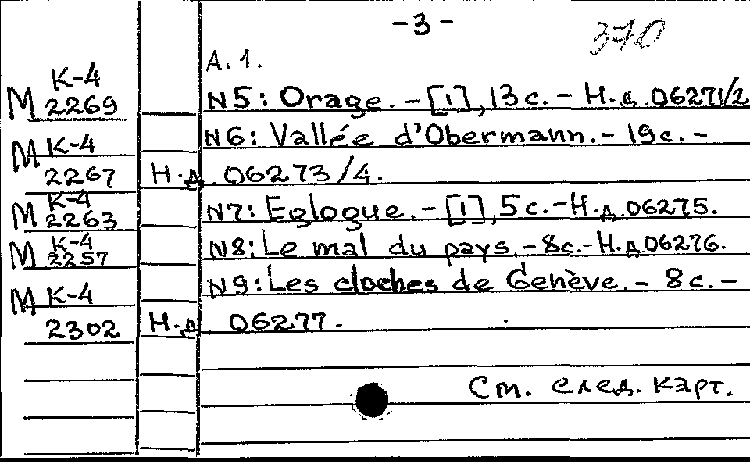 -3-
370
А.1.
М К-4 2269 N5: Orage. - [1], 13 с. - Н.д. 06271/2
М К-4 N6: Vallée d'Obermann. - 19с. -
2267 Н.д 06273/4.
М К-4 2263 N7: Eglogue. - [1], 5 с. - Н.д 06275.
М К-4 2257 N8: Le mal du pays. - 8с. - Н.д 06276.
М К-4 N9: Les cloches de Genève. - 8с. -
2302 Н.д 06277.
См. след. карт.